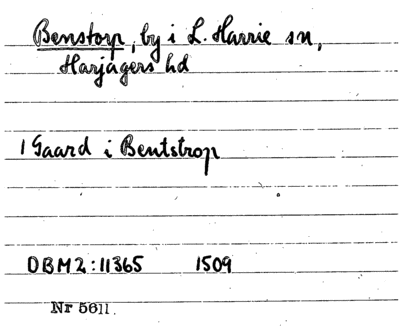 Benstorp, by i L. Harrie sn,
Harjagers hd
1 Gaard i Bentstrop
DBM2:11365 1509
Nr 5611.